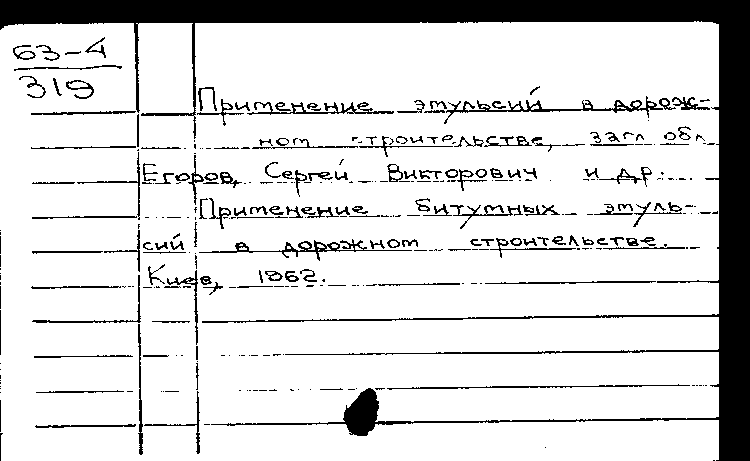 63-4
319
Применение эмульсий в дорож-
ном строительстве, загл обл
Егоров, Сергей Викторович и др.
Применение битумных эмуль-
сий в дорожном строительстве.
Киев, 1962.